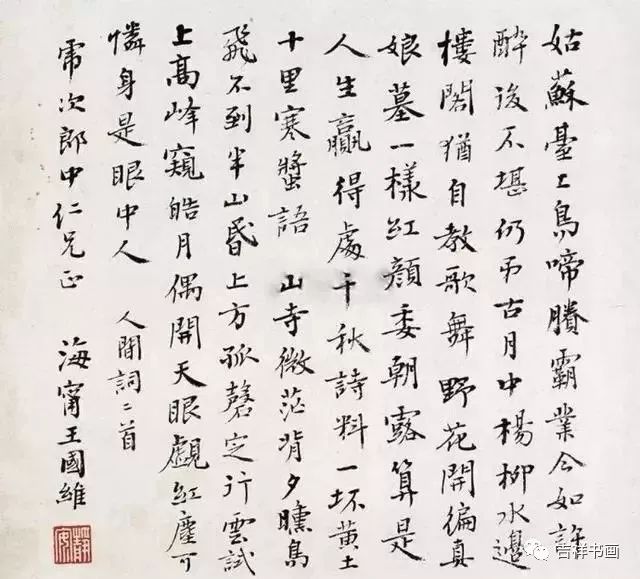 姑蘇臺上烏啼賸霸業今如許
醉後不堪仍弔古月中楊柳水邊
樓閣猶自教歌舞 野花開徧真
娘墓一樣紅顏委朝露算是
人生贏得處千秋詩料一坏黃土
十里寒螿語 山寺微茫背夕曛鳥
飛不到半山昏上方孤磬定行雲試
上高峰窺皓月偶開天眼覷紅塵可
憐身是眼中人 人間詞二首
次郎中仁兄正 海甯王國維
靜安
吉祥书画